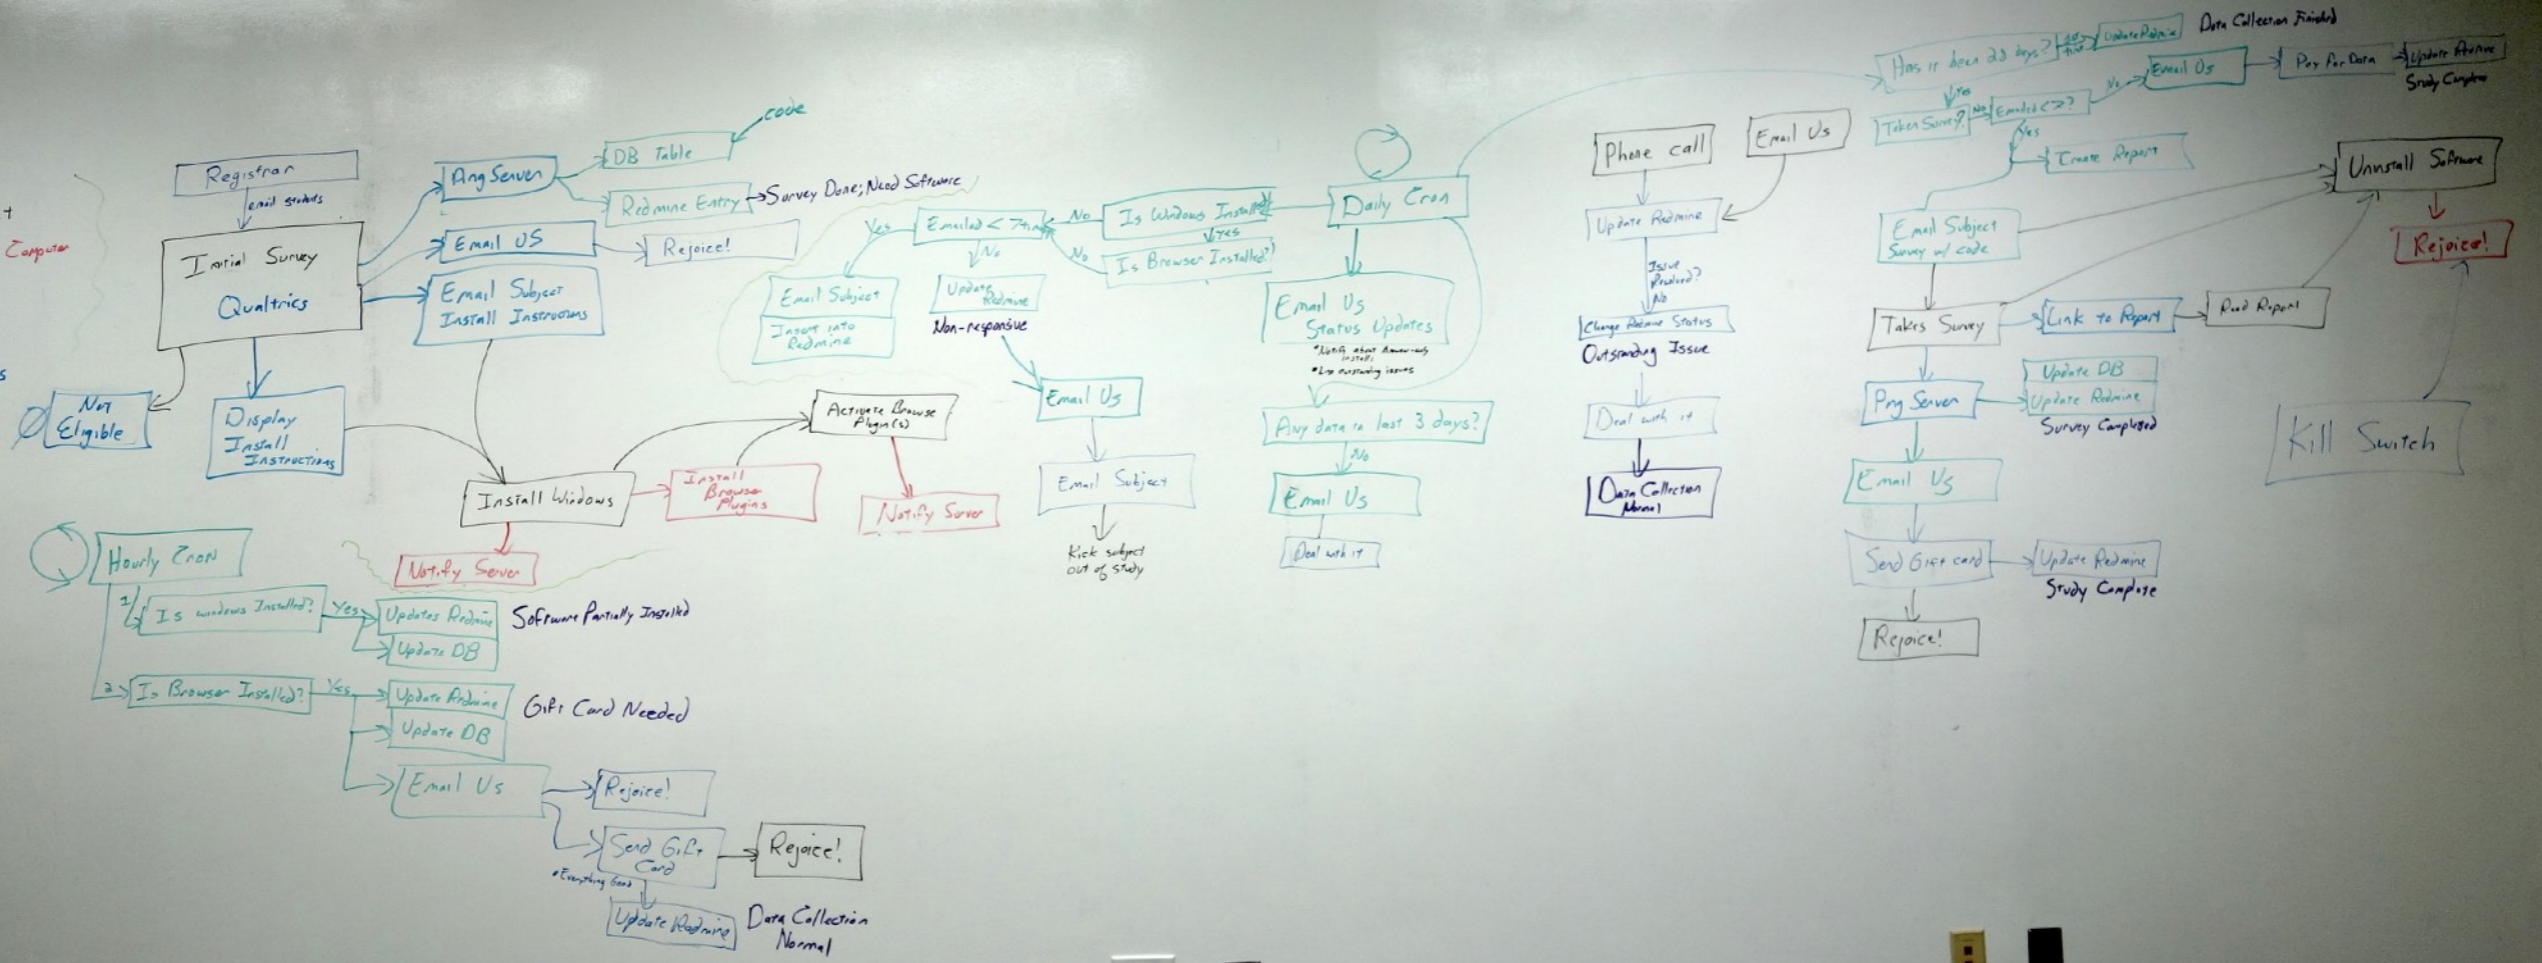 Registrar
email students
Initial Survey
Qualtrics
Computer
Not
Eligible
Display
Install
Instructions
Ping Server
DB Table
code
Redmine Entry
Survey Done; Need Software
Email US
Rejoice!
Email Subject
Install Instructions
Install Windows
Notify Server
Install
Browser
Plugins
Activate Browse
Plugin(s)
Notify Server
Hourly Cron
1
Is windows Installed?
Yes
Updates Redmine
Update DB
Software Partially Installed
2
Is Browser Installed?
Yes
Update Redmine
Update DB
Gift Card Needed
Email Us
Rejoice!
Send Gift
Card
Rejoice!
• Everything Good
Update Redmine
Data Collection
Normal
Daily Cron
Is Windows Installed
Yes
Is Browser Installed?
No
No
Emailed < 7
Yes
Email Subject
Insert into
Redmine
No
Update
Redmine
Non-responsive
Email Us
Email Subject
Kick subject
out of study
Email Us
Status Updates
• Notify about
installs
• List outstanding issues
Any data in last 3 days?
No
Email Us
Deal with it
Phone call
Email Us
Update Redmine
Issue
Resolved?
No
Change Redmine Status
Outstanding Issue
Deal with it
Data Collection
Normal
Has it been 28 days?
Update Redmine
Data Collection Finished
Yes
Taken Survey?
No
Emailed < 7?
No
Email Us
Pay for Data
Update
Study Complete
Yes
Create Report
Email Subject
Survey w/ code
Takes Survey
Link to Report
Read Report
Uninstall Software
Rejoice!
Kill Switch
Ping Server
Update DB
Update Redmine
Survey Completed
Email Us
Send Gift card
Update Redmine
Study Complete
Rejoice!